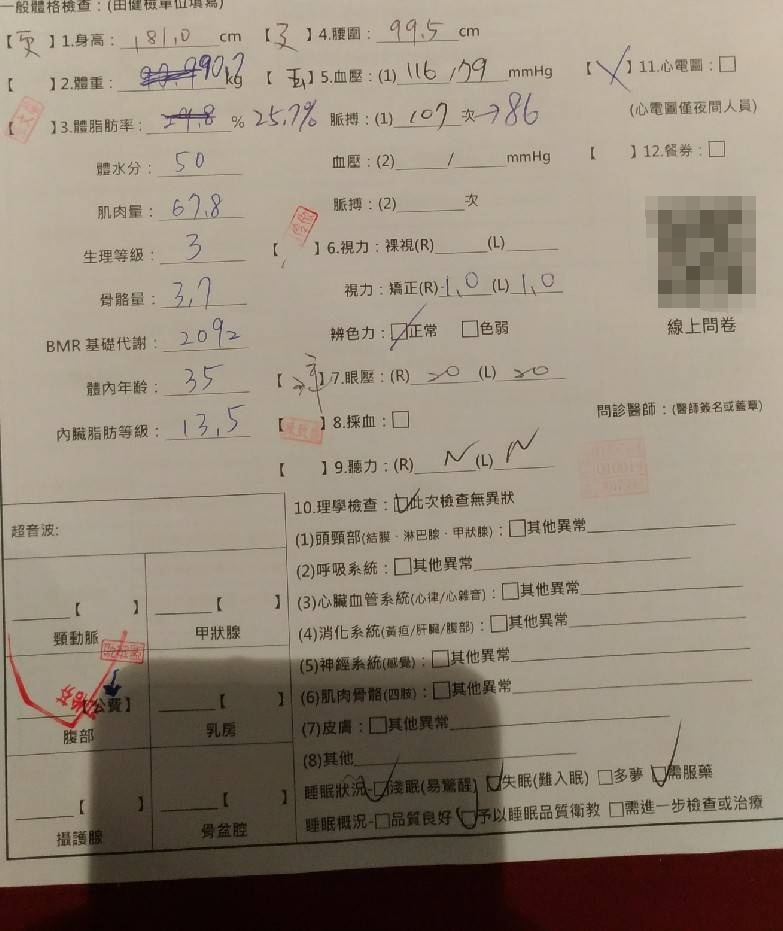 一般體格檢查：(由健檢單位填寫)
【 】1.身高：181.0 cm 【 】4.腰圍：99.5 cm
【 】2.體重：90.7 kg 【 】5.血壓：(1) 116 / 79 mmHg 【 】11.心電圖：□
【 】3.體脂肪率： % 25.7% 脈搏：(1) 107 次→86 (心電圖僅夜間人員)
體水分：50 血壓：(2) / mmHg 【 】12.餐券：□
肌肉量：67.8 脈搏：(2) 次
生理等級：3 【 】6.視力：裸視(R) (L)
骨骼量：3.7 視力：矯正(R) 1.0 (L) 1.0
BMR 基礎代謝：2092 辨色力：□正常 □色弱 線上問卷
體內年齡：35 【 】7.眼壓：(R) 20 (L) 20
內臟脂肪等級：13.5 【 】8.採血：□ 問診醫師：(醫師簽名或蓋章)
【 】9.聽力：(R) N (L) N
超音波:
10.理學檢查：□此次檢查無異狀
(1)頭頸部(結膜、淋巴腺、甲狀腺)：□其他異常
(2)呼吸系統：□其他異常
【 】 【 】 (3)心臟血管系統(心律/心雜音)：□其他異常
頸動脈 甲狀腺 (4)消化系統(黃疸/肝臟/腹部)：□其他異常
(5)神經系統(感覺)：□其他異常
【公費】 【 】 (6)肌肉骨骼(四肢)：□其他異常
腹部 乳房 (7)皮膚：□其他異常
(8)其他
【 】 【 】 睡眠狀況-□淺眠(易驚醒) □失眠(難入眠) □多夢 □需服藥
攝護腺 骨盆腔 睡眠概況-□品質良好 □予以睡眠品質衛教 □需進一步檢查或治療